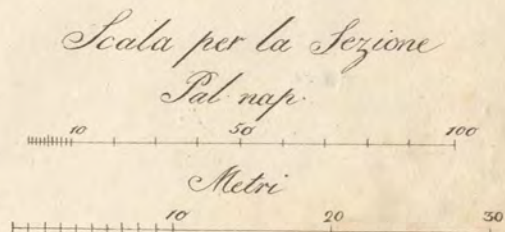 Scala per la Sezione
Pal. nap.
10 50 100
Metri
10 20 30